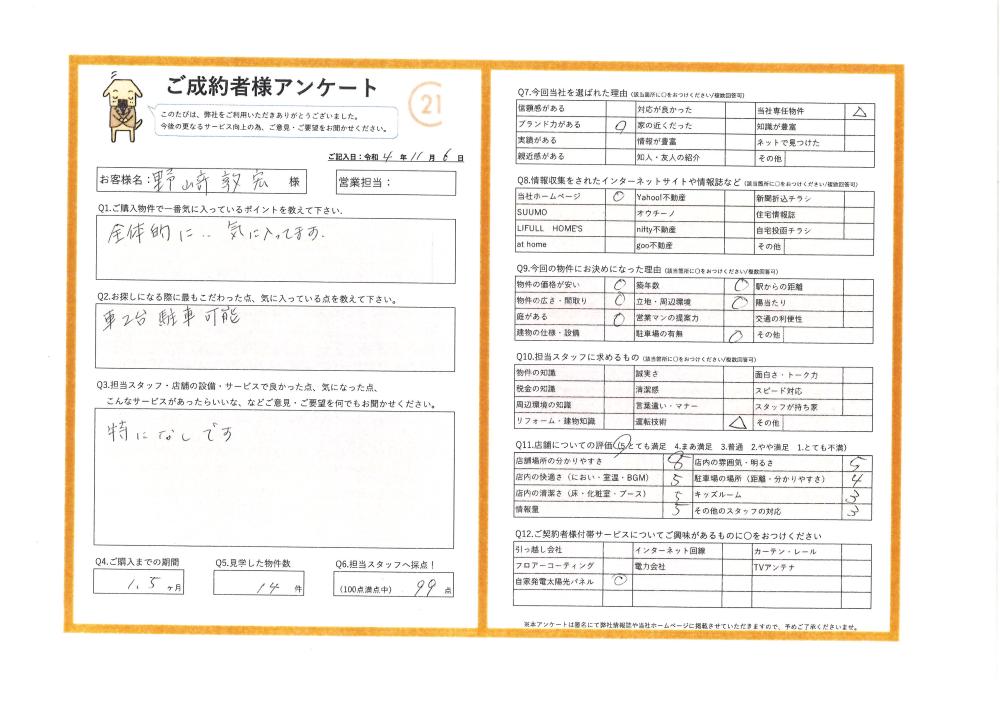 ご成約者様アンケート
21
このたびは、弊社をご利用いただきありがとうございました。
今後の更なるサービス向上の為、ご意見・ご要望をお聞かせください。
ご記入日:令和 4 年 11 月 6 日
お客様名:野﨑 敦宏 様
営業担当:
Q1.ご購入物件で一番気に入っているポイントを教えて下さい.
全体的に.. 気に入ってます.
Q2.お探しになる際に最もこだわった点、気に入っている点を教えて下さい。
車2台 駐車可能
Q3.担当スタッフ・店舗の設備・サービスで良かった点、気になった点、
こんなサービスがあったらいいな、などご意見・ご要望を何でもお聞かせください。
特になしです
Q4.ご購入までの期間
1.5 ヶ月
Q5.見学した物件数
14 件
Q6.担当スタッフへ採点!
(100点満点中) 99 点
Q7.今回当社を選ばれた理由(該当箇所に○をおつけください/複数回答可)
信頼感がある 対応が良かった 当社専任物件 △
ブランド力がある ○ 家の近くだった 知識が豊富
実績がある 情報が豊富 ネットで見つけた
親近感がある 知人・友人の紹介 その他
Q8.情報収集をされたインターネットサイトや情報誌など(該当箇所に○をおつけください/複数回答可)
当社ホームページ ○ Yahoo!不動産 新聞折込チラシ
SUUMO オウチーノ 住宅情報誌
LIFULL HOME'S nifty不動産 自宅投函チラシ
at home goo不動産 その他
Q9.今回の物件にお決めになった理由(該当箇所に○をおつけください/複数回答可)
物件の価格が安い ○ 築年数 ○ 駅からの距離
物件の広さ・間取り ○ 立地・周辺環境 ○ 陽当たり
庭がある ○ 営業マンの提案力 交通の利便性
建物の仕様・設備 駐車場の有無 ○ その他
Q10.担当スタッフに求めるもの(該当箇所に○をおつけください/複数回答可)
物件の知識 誠実さ 面白さ・トーク力
税金の知識 清潔感 スピード対応
周辺環境の知識 言葉遣い・マナー スタッフが持ち家
リフォーム・建物知識 運転技術 △ その他
Q11.店舗についての評価(5.とても満足 4.まあ満足 3.普通 2.やや満足 1.とても不満)
店舗場所の分かりやすさ 店内の雰囲気・明るさ 5
店内の快適さ(におい・室温・BGM) 5 駐車場の場所(距離・分かりやすさ) 4
店内の清潔さ(床・化粧室・ブース) 5 キッズルーム 3
情報量 5 その他のスタッフの対応 3
Q12.ご契約者様付帯サービスについてご興味があるものに○をおつけください
引っ越し会社 インターネット回線 カーテン・レール
フロアーコーティング 電力会社 TVアンテナ
自家発電太陽光パネル ○
※本アンケートは匿名にて弊社情報誌や当社ホームページに掲載させていただきますので、予めご了承くださいませ。